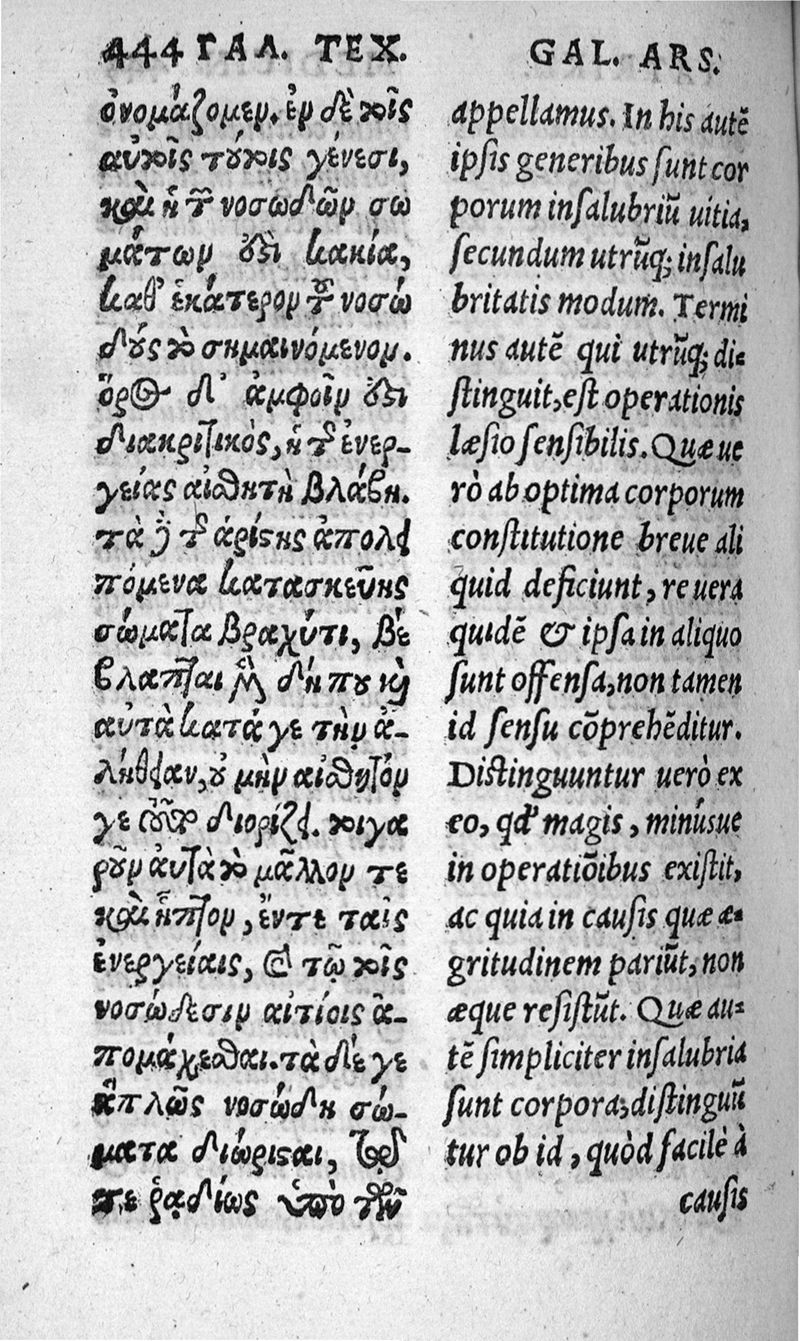 444 ΓΑΛ. ΤΕΧ.
ὀνομάζομεν. ἐν δὲ τοῖς
αὐτοῖς τούτοις γένεσι,
καὶ ἡ τῶν νοσωδῶν σω
μάτων ἐστὶ κακία,
καθ' ἑκάτερον τῶν νοσώ
δους τὸ σημαινόμενον.
ὅρος δ' ἀμφοῖν ἐστι
διακριτικὸς, ἡ τῆς ἐνερ-
γείας αἰσθητὴ βλάβη.
τὰ δὲ τῆς ἀρίστης ἀπολει
πόμενα κατασκευῆς
σώματα βραχύτι, βέ
βλαπται μὲν δήπου καὶ
αὐτὰ κατά γε τὴν ἀ-
λήθειαν, οὐ μὴν αἰσθητόν
γε οὕτω διορίζει. τοιγα
ροῦν αὐτὰ τὸ μᾶλλον τε
καὶ ἧττον, ἔν τε ταῖς
ἐνεργείαις, καὶ τῷ τοῖς
νοσώδεσιν αἰτίοις ἀ-
πομάχεσθαι. τὰ δέ γε
ἁπλῶς νοσώδη σώ-
ματα διώρισται, τῷ
τε ῥᾳδίως ὑπὸ τῶν
GAL. ARS.
appellamus. In his autē
ipsis generibus sunt cor
porum insalubriū uitia,
secundum utrūq; insalu
britatis modum. Termi
nus autē qui utrūq; di-
stinguit, est operationis
læsio sensibilis. Quæ ue
rò ab optima corporum
constitutione breue ali
quid deficiunt, re uera
quidē & ipsa in aliquo
sunt offensa, non tamen
id sensu cōprehēditur.
Distinguuntur uerò ex
eo, qd' magis, minúsue
in operatiōibus existit,
ac quia in causis quæ æ-
gritudinem pariūt, non
æque resistūt. Quæ au-
tē simpliciter insalubria
sunt corpora, distinguū
tur ob id, quòd facilè à
causis